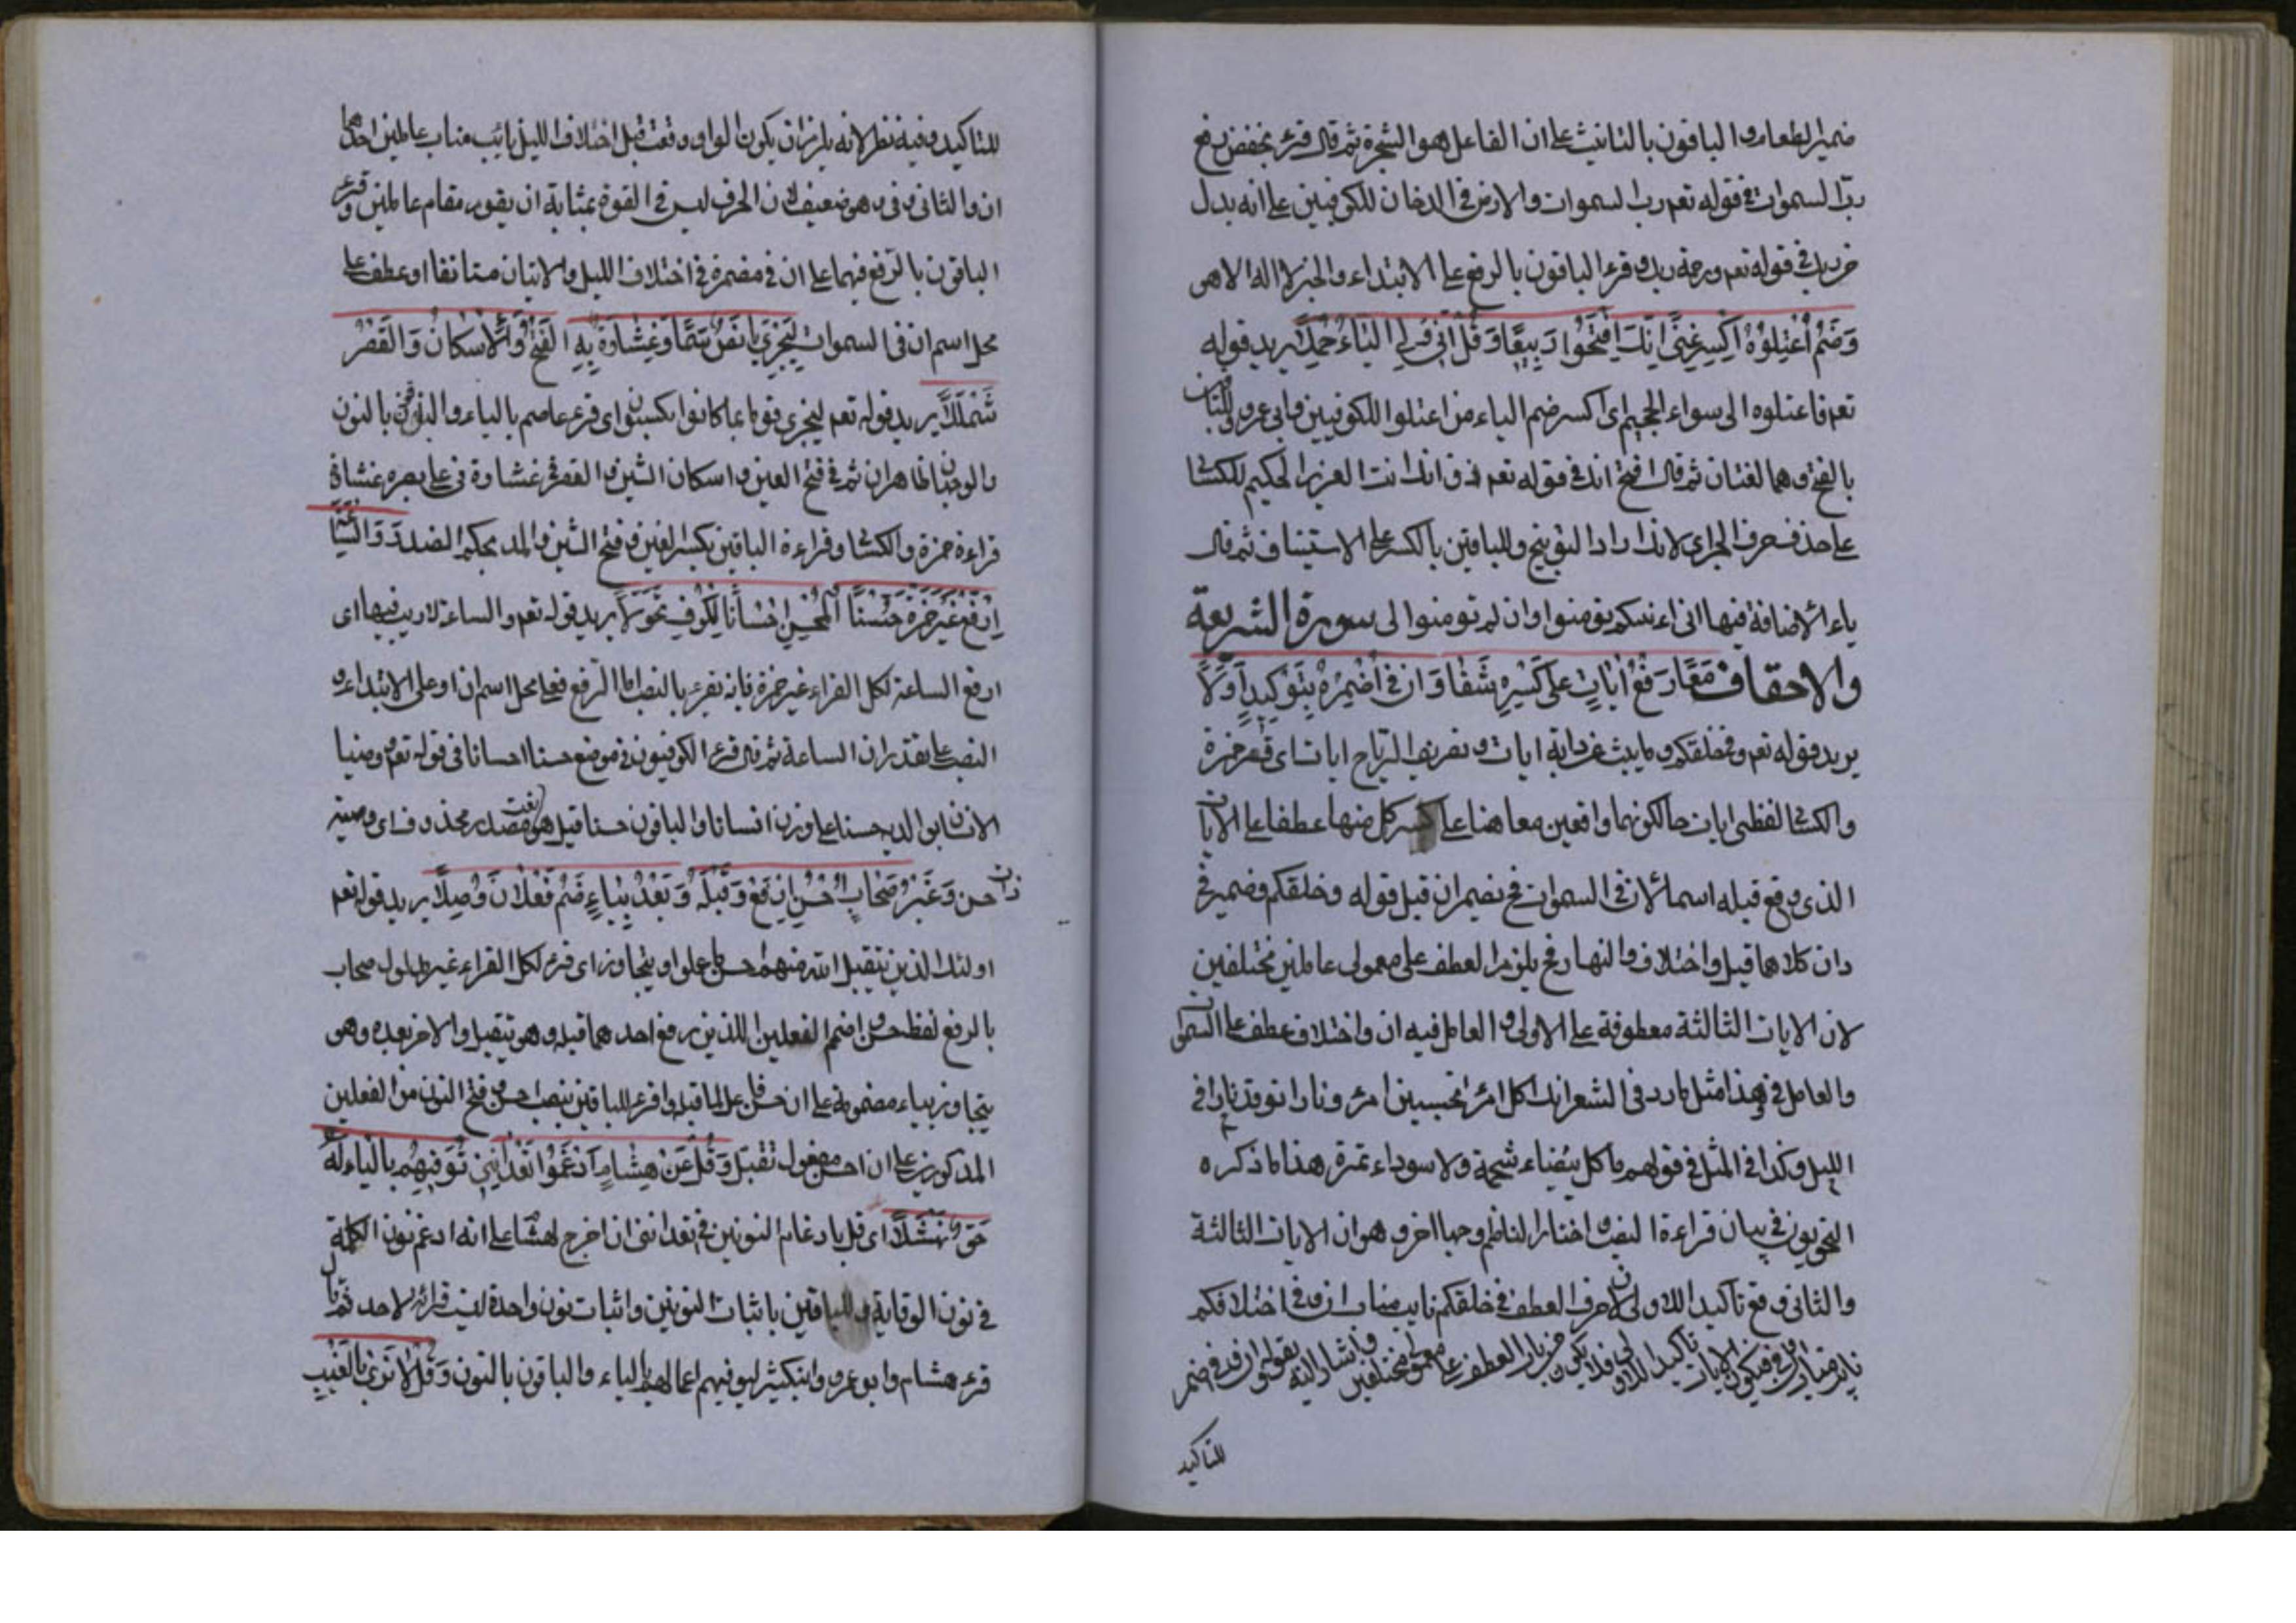 ضمير الطعام والباقون بالتانيث على ان الفاعل هو الشجرة ثم قال قرئ بخفض رفع
ربّ السموات في قوله تعم رب السموات والارض في الدخان للكوفيين على انه بدل
من ربك في قوله تعم رحمة من ربك وقرء الباقون بالرفع على الابتداء والخبر لا اله الا هو
وَضَمُّ اعْتِلُوهُ اكْسِرْ غِنًى اِنَّكَ افْتَحُوا رَبِيعًا وَقُلْ اِنِّي وَلِي الْيَاءُ حُمِّلَا يريد قوله
تعم فاعتلوه الى سواء الجحيم اى اكسر ضم التاء من اعتلوا للكوفيين وابى عمرو وللباقين
بالفتح وهما لغتان ثم قال افتح انك في قوله تعم ذق انك انت العزيز الحكيم للكسائى
على حذف حرف الجر اى لانك اراد التوبيخ وللباقين بالكسر على الاستيناف ثم قال
ياء الاضافة فيها انى اتيكم تومنوا وان لم تومنوا لى سورة الشريعة
والاحقاف مَعًا رَفْعُ اٰيَاتٍ عَلَى كَسْرِهِ شَفَا وَاِنَّ وَفِى اَضْمِرْ بِتَوْكِيدٍ اَوِّلَا
يريد قوله تعم وفى خلقكم وما يبث من دابة ايات وتصريف الرياح ايات اى قرء حمزة
والكسائى لفظى ايات حال كونهما واقعين معا هنا على كسر كل منهما عطفا على الايات
الذى وقع قبله اسما لان فى السموات فح تضمر ان قبل قوله وخلقكم وضمير فى
وان كلاهما قبل واختلاف والنهار فح يلزم العطف على معمولى عاملين مختلفين
لان الايات الثالثة معطوفة على الاولى والعامل فيه ان واختلاف عطف على السموات
والعامل فى وهذا مثل ما ورد فى الشعر اكل امرئ تحسبين امرء ونارا توقد نارا فى
الليل وكذا فى المثل فى قولهم ما كل بيضاء شحمة ولا سوداء تمرة هذا ما ذكره
النحويون فى بيان قراءة النصب واختار الناظم وجها اخر وهو ان الايات الثالثة
والثانى وقع تاكيدا للاولى لان حرف العطف فى خلقكم نايب مناب ان وفى اختلافكم
نايب مناب فى فيكون الايات تاكيدا للاولى فلا يكون من باب العطف على معمولى مختلفين واشار اليه بقوله ان وفى اضمر
للتاكيد
للتاكيد وفيه نظر لانه يلزم ان يكون الواو وقعت قبل اختلاف الليل نائب مناب عاملين احدهما
ان والثانى فى وهو ضعيف لان الحرف ليس فى القوة بمثابة ان يقوم مقام عاملين وقرء
الباقون بالرفع فيهما على ان فى مضمرة فى اختلاف الليل والاتيان مستانفا او عطف على
محل اسم ان فى السموات لِيَجْزِىَ يَا نَصٍّ سَمَا وَغِشَاوَةٌ بِهِ الْفَتْحُ وَالْاِسْكَانُ وَالْقَصْرُ
شُمِّلَلَا يريد قوله تعم ليجزى قوما بما كانوا يكسبون اى قرء عاصم بالياء والباقون بالنون
والوجهان ظاهران ثم فى فتح العين واسكان الشين والقصر فى غشاوة فى على بصره غشاوة
قراءة حمزة والكسائى وقراءة الباقين بكسر الغين وفتح الشين والمد بحكم الضد وَوَالسَّاعَةَ
اِرْفَعْ غَيْرَ حَمْزَةَ حُسْنًا الْمُحَسِّنُ اِحْسَانًا لِكُوفٍ تَحَوَّلَا يريد قوله تعم والساعة لا ريب فيها اى
ارفع الساعة لكل القراء غير حمزة فانه يقرء بالنصب اما الرفع فعلى محل اسم ان او على الابتداء و
النصب على تقدير ان الساعة ثم قال قرء الكوفيون فى موضع حسنا احسانا فى قوله تعم ووصينا
الانسان بوالديه حسنا على وزن انسانا والباقون حسنا قيل هو نعت مصدر محذوف اى وصية
ذات حسن وَغَيْرُ صِحَابٍ اَحْسَنَ ارْفَعْ وَقَبْلَهُ وَبَعْدُ بِيَاءٍ ضُمَّ فِعْلَانِ وُصِّلَا يريد قوله تعم
اولئك الذين نتقبل الله منهم احسن ما عملوا ويتجاوز اى قرء لكل القراء غير مدلول صحاب
بالرفع لفظ احسن واضمم الفعلين اللذين وقع احدهما قبله وهو يتقبل والاخر بعده وهو
يتجاوز بياء مضمومة على ان احسن فاعل لما قبله واقرء للباقين بنصب احسن وفتح النون من الفعلين
المذكورين على ان احسن مفعول نتقبل وَقُلْ عَنْ هِشَامٍ اَدْغَمُوا تَعِدَانِنِى نُوَفِّيَهُمْ بِالْيَاءِ لَهُ
حَقُّ نَهْشَلَا اى قل بادغام النونين فى تعداننى ان اخرج لهشام على انه ادغم نون الكلمة
فى نون الوقاية وللباقين باثبات النونين واثبات نون واحدة ليست قرائة لاحد ثم قال
قرء هشام وابو عمرو وابن كثير ليوفيهم اعمالهم بالياء والباقون بالنون وَقُلْ لَا تَرَى بِالْغَيْبِ